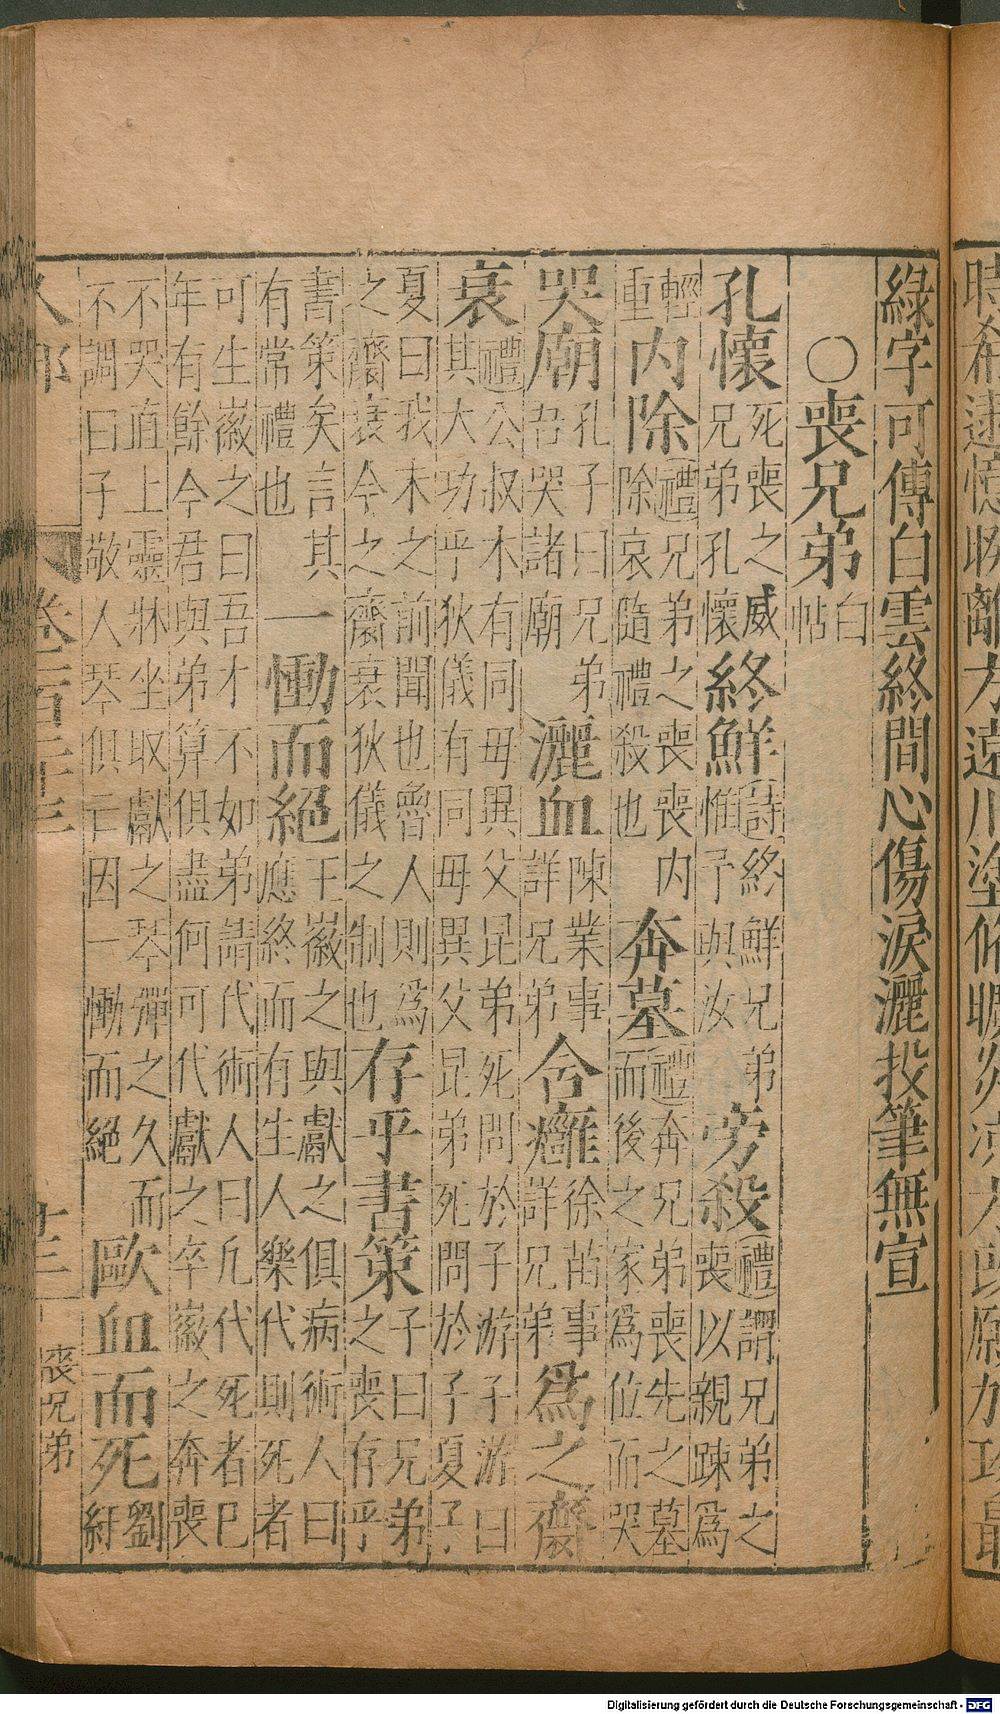 綠字可傳白雲終間心傷淚灑投筆無宣
○喪兄弟白帖
孔懷死喪之威兄弟孔懷終鮮詩終鮮兄弟惟予與汝旁殺禮謂兄弟之喪以親踈爲
輕重內除禮兄弟之喪喪內除哀隨禮殺也奔墓禮奔兄弟喪先之墓而後之家爲位而哭
哭廟孔子曰兄弟吾哭諸廟灑血陳業事詳兄弟含癰徐苗事詳兄弟爲之齊
衰禮公叔木有同母異父昆弟死問於子游子游曰其大功乎狄儀有同母異父昆弟死問於子夏子
夏曰我未之前聞也魯人則爲之齊衰今之齊衰狄儀之制也存乎書策子曰兄弟之喪存乎
書策矣言其有常禮也一慟而絕王徽之與獻之俱病術人曰應終而有生人樂代則死者
可生徽之曰吾才不如弟請代術人曰凡代死者已年有餘今君與弟算俱盡何可代獻之卒徽之奔喪
不哭直上靈牀坐取獻之琴彈之久而不調曰子敬人琴俱亡因一慟而絕歐血而死劉紅
喪兄弟
Digitalisierung gefördert durch die Deutsche Forschungsgemeinschaft - DFG